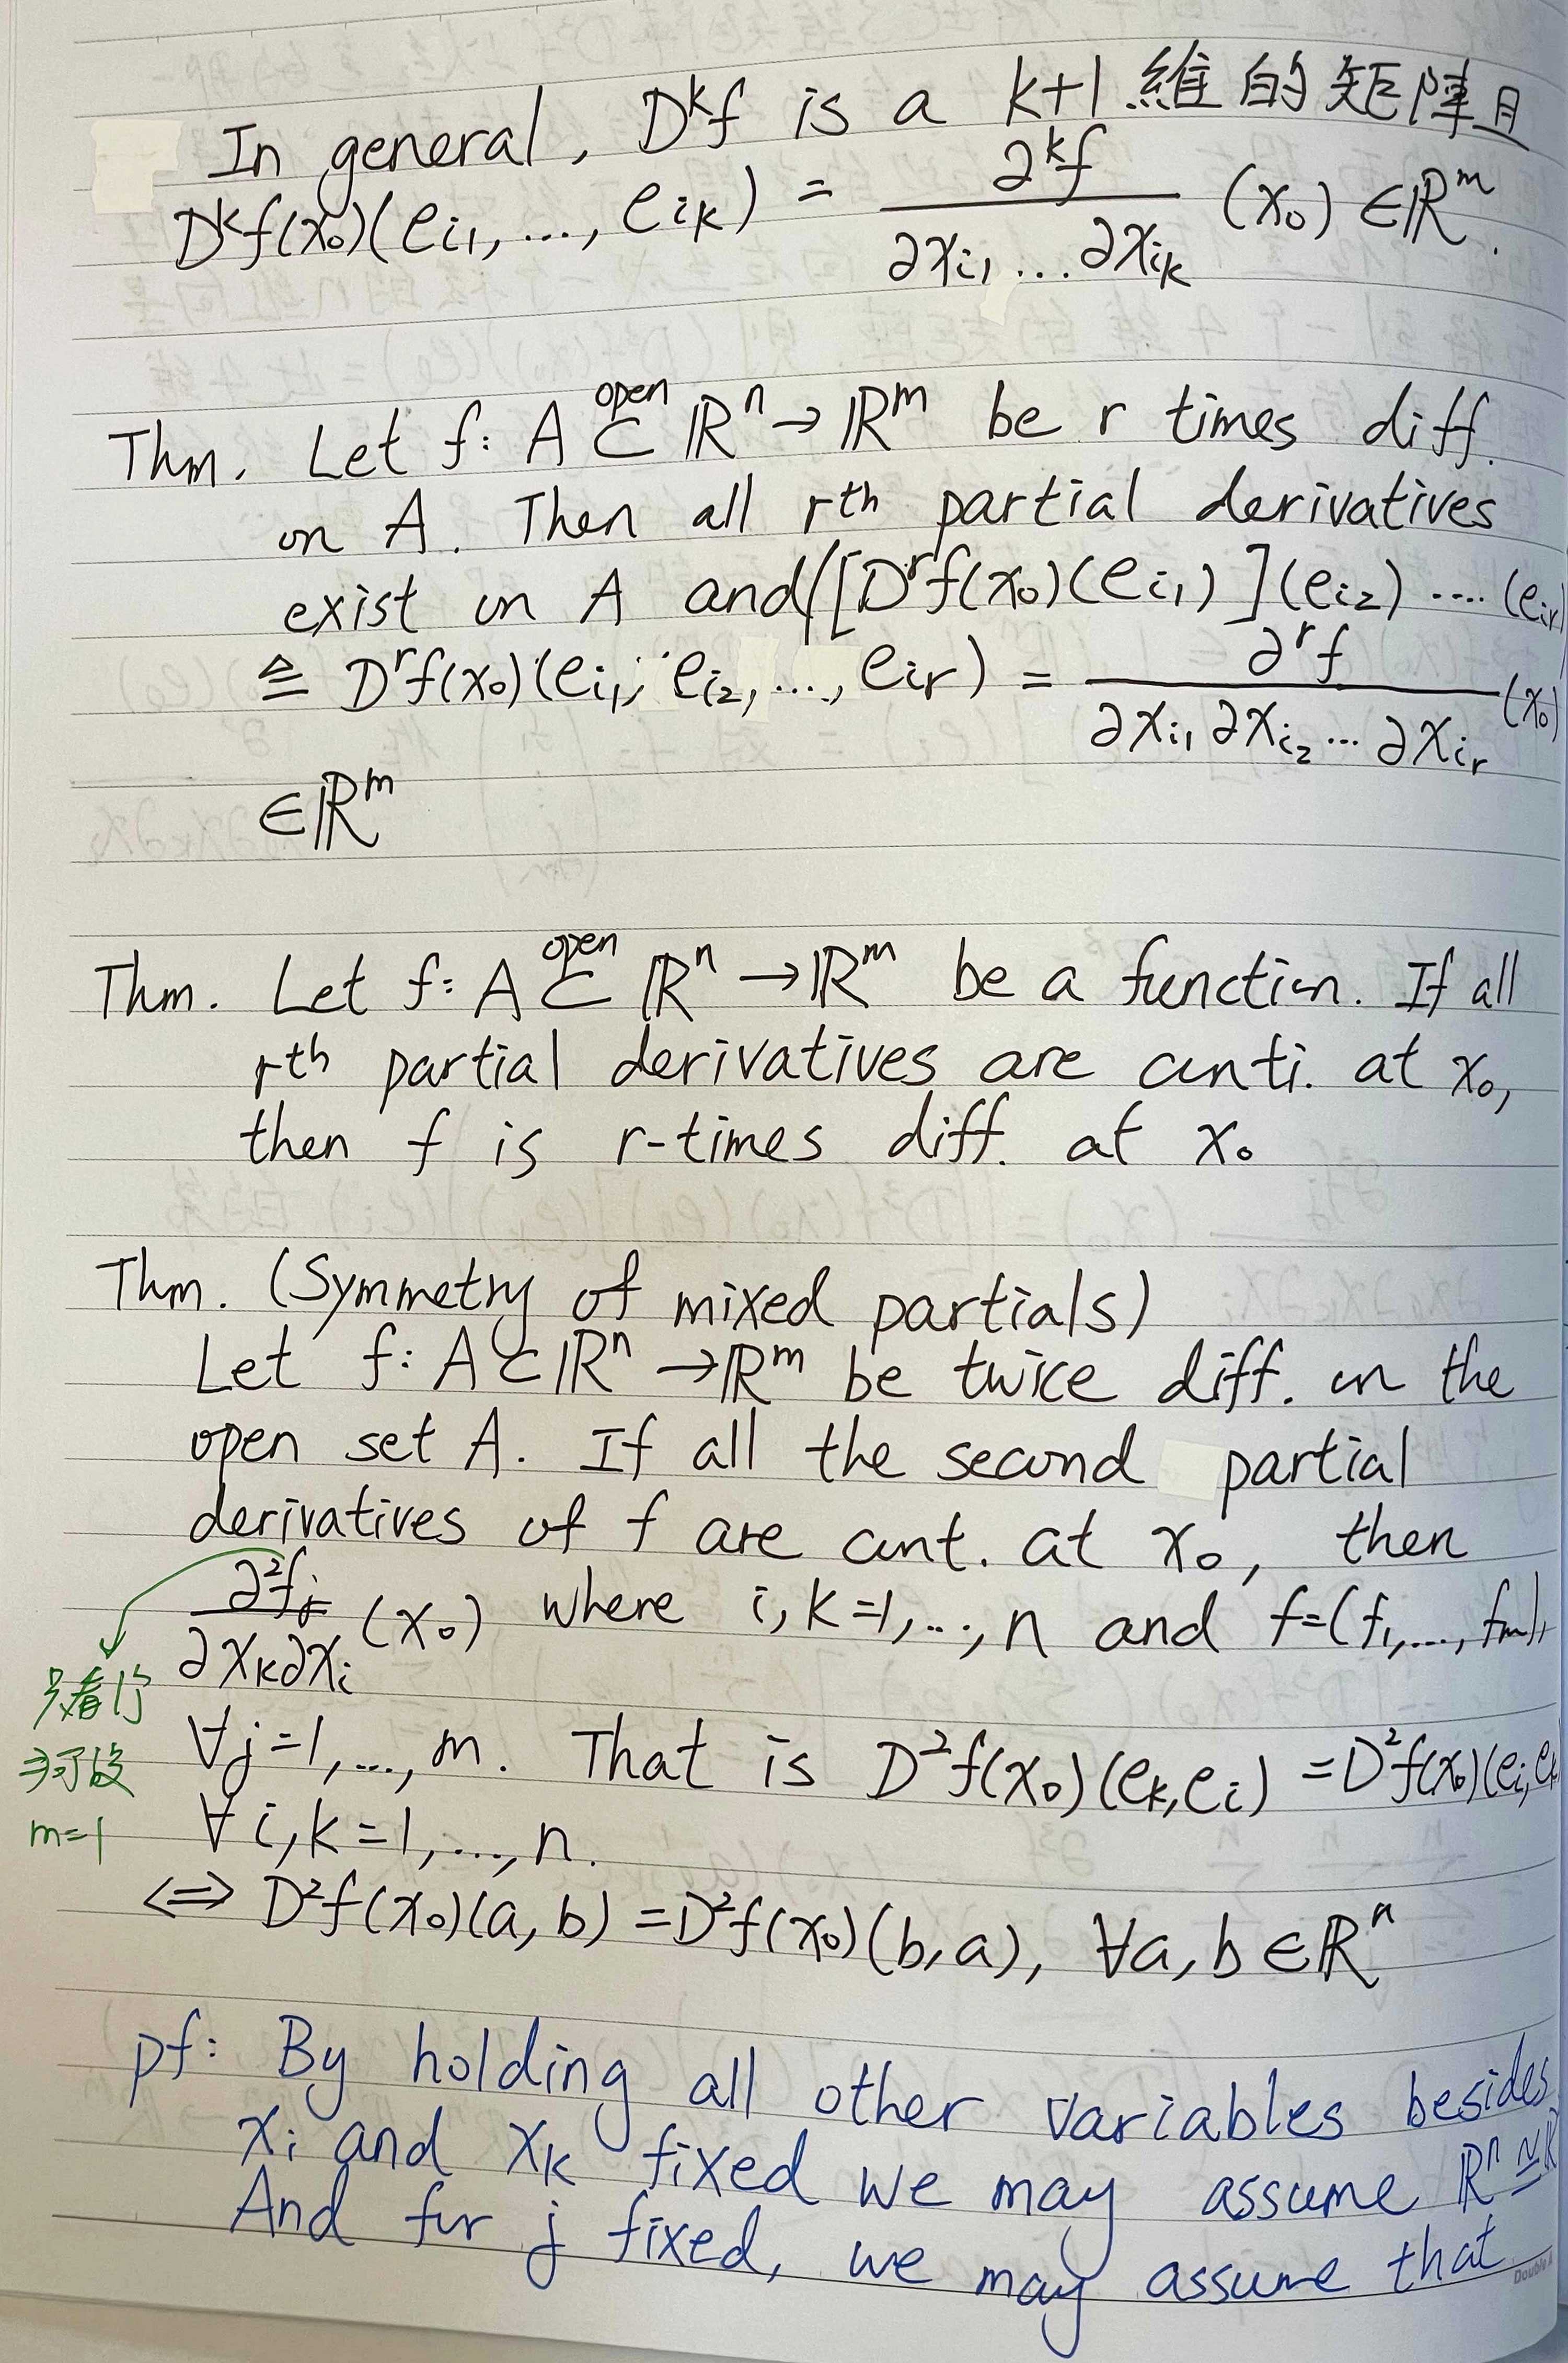 In general, Dᵏf is a k+1 維的矩陣且
Dᵏf(x₀)(e_{i1}, ..., e_{ik}) = ∂ᵏf / ∂x_{i1} ... ∂x_{ik} (x₀) ∈ ℝᵐ.
Thm. Let f: A ⊂^{open} ℝⁿ → ℝᵐ be r times diff.
on A. Then all rth partial derivatives
exist on A and ([Dʳf(x₀)(e_{i1})](e_{i2}) .... (e_{ir})
≜ Dʳf(x₀)(e_{i1}, e_{i2}, ..., e_{ir}) = ∂ʳf / ∂x_{i1} ∂x_{i2} ... ∂x_{ir} (x₀)
∈ ℝᵐ
Thm. Let f: A ⊂^{open} ℝⁿ → ℝᵐ be a function. If all
rth partial derivatives are conti. at x₀,
then f is r-times diff. at x₀
Thm. (Symmetry of mixed partials)
Let f: A ⊂ ℝⁿ → ℝᵐ be twice diff. on the
open set A. If all the second partial
derivatives of f are cont. at x₀, then
∂²f_j / ∂x_k∂x_i (x₀) where i, k=1, ..., n and f=(f₁, ..., f_m),
只看
m=1
∀j=1, ..., m. That is D²f(x₀)(e_k, e_i) = D²f(x₀)(e_i, e_k
∀i, k=1, ..., n.
⟺ D²f(x₀)(a, b) = D²f(x₀)(b, a), ∀a, b ∈ ℝⁿ
pf: By holding all other variables besides
x_i and x_k fixed we may assume ℝⁿ ≅ ℝ
And for j fixed, we may assume that
Double A